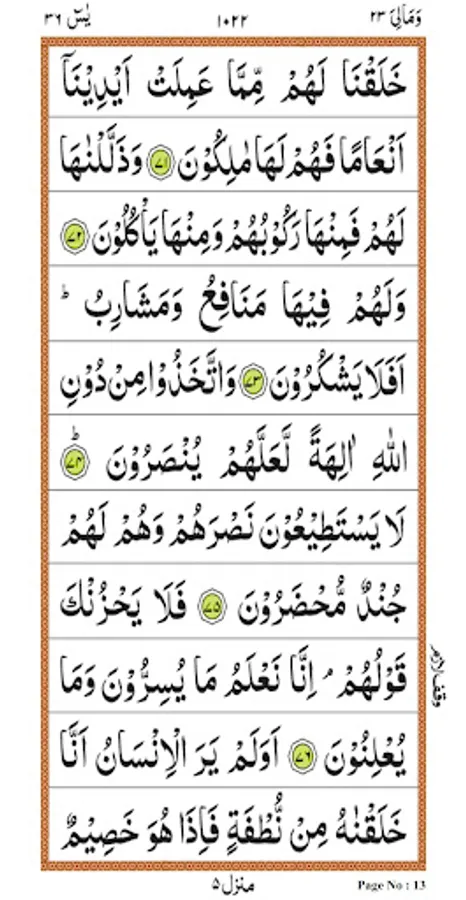 وَمَالِيَ ٢٣ ١٠٢٢ يٰسٓ ٣٦
خَلَقْنَا لَهُمْ مِّمَّا عَمِلَتْ اَيْدِيْنَاۤ
اَنْعَامًا فَهُمْ لَهَا مٰلِكُوْنَ ﴿٧١﴾ وَذَلَّلْنٰهَا
لَهُمْ فَمِنْهَا رَكُوْبُهُمْ وَمِنْهَا يَاْكُلُوْنَ ﴿٧٢﴾
وَلَهُمْ فِيْهَا مَنَافِعُ وَمَشَارِبُ ؕ
اَفَلَا يَشْكُرُوْنَ ﴿٧٣﴾ وَاتَّخَذُوْا مِنْ دُوْنِ
اللّٰهِ اٰلِهَةً لَّعَلَّهُمْ يُنْصَرُوْنَ ﴿٧٤﴾ؕ
لَا يَسْتَطِيْعُوْنَ نَصْرَهُمْ وَهُمْ لَهُمْ
جُنْدٌ مُّحْضَرُوْنَ ﴿٧٥﴾ فَلَا يَحْزُنْكَ
قَوْلُهُمْ ۘ اِنَّا نَعْلَمُ مَا يُسِرُّوْنَ وَمَا
وقف لازم
يُعْلِنُوْنَ ﴿٧٦﴾ اَوَلَمْ يَرَ الْاِنْسَانُ اَنَّا
خَلَقْنٰهُ مِنْ نُّطْفَةٍ فَاِذَا هُوَ خَصِيْمٌ
منزل ٥
Page No : 13